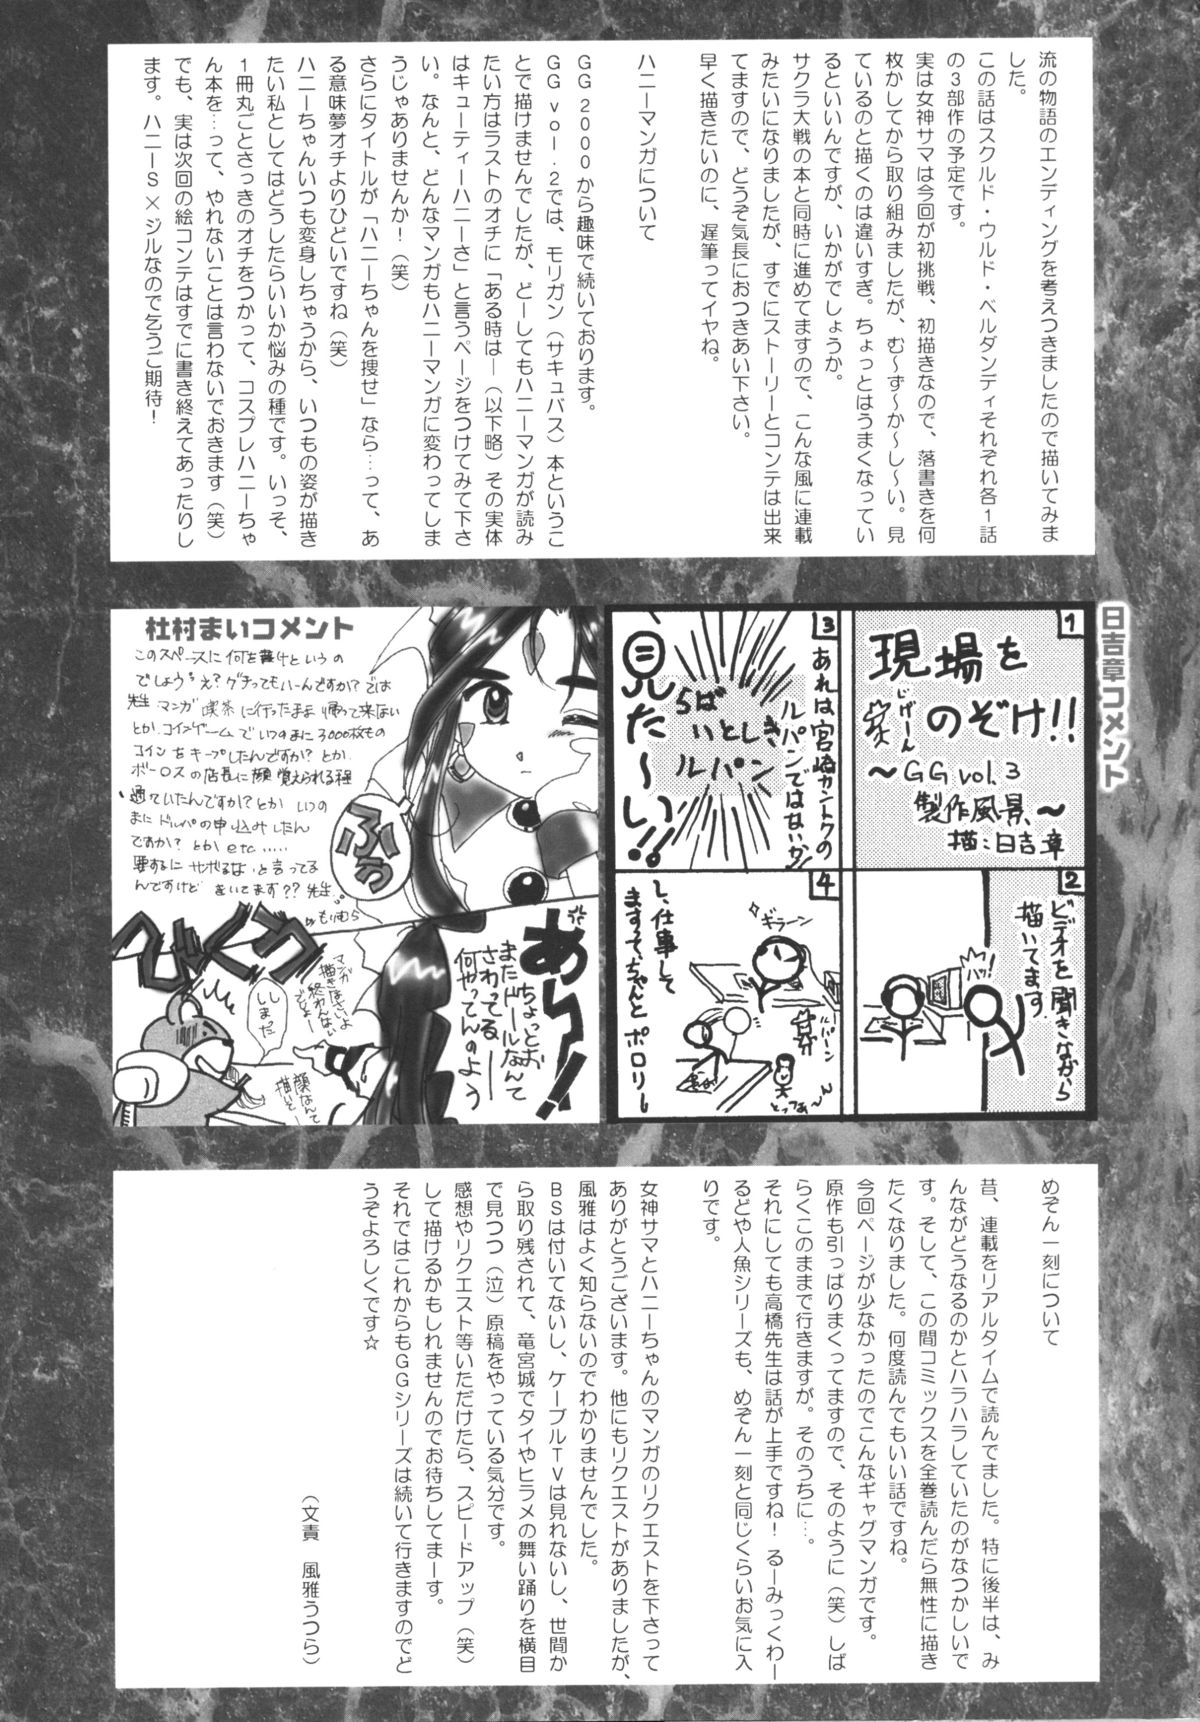 流の物語のエンディングを考えつきましたので描いてみま
した。
この話はスクルド・ウルド・ベルダンディそれぞれ各1話
の3部作の予定です。
実は女神サマは今回が初挑戦、初描きなので、落書きを何
枚かしてから取り組みましたが、む～ず～か～し～い。見
ているのと描くのは違いすぎ。ちょっとはうまくなってい
るといいんですが、いかがでしょうか。
サクラ大戦の本と同時に進めてますので、こんな風に連載
みたいになりましたが、すでにストーリーとコンテは出来
てますので、どうぞ気長におつきあい下さい。
早く描きたいのに、遅筆ってイヤね。
ハニーマンガについて
GG2000から趣味で続いております。
GG vol.2では、モリガン(サキュバス)本というこ
とで描けませんでしたが、どーしてもハニーマンガが読み
たい方はラストのオチに「ある時は―(以下略)その実体
はキューティーハニーさ」と言うページをつけてみて下さ
い。なんと、どんなマンガもハニーマンガに変わってしま
うじゃありませんか!(笑)
さらにタイトルが「ハニーちゃんを捜せ」なら…って、あ
る意味夢オチよりひどいですね(笑)
ハニーちゃんいつも変身しちゃうから、いつもの姿が描き
たい私としてはどうしたらいいか悩みの種です。いっそ、
1冊丸ごとさっきのオチをつかって、コスプレハニーちゃ
ん本を…って、やれないことは言わないでおきます(笑)
でも、実は次回の絵コンテはすでに書き終えてあったりし
ます。ハニーS×ジルなので乞うご期待!
日吉章コメント
1
現場を
のぞけ!!
じげーん
～GG vol.3
製作風景～
描:日吉章
2
ビデオを聞きながら
描いてます
バッ!
3
あれは宮崎カントクの
ルパンではないか
らば
いとしき
ルパン
見た～い!!
4
ギラーン
ルパーン
とっつぁ～ん
し、仕事して
ますって、ちゃんと
ポロリー
杜村まいコメント
このスペースに何を書けというの
でしょう?え?グチってもいーんですか?では
先生マンガ喫茶に行ったまま帰って来ない
とかコインゲームでいつのまに3000枚もの
コインをキープしたんですか?とか
ボーロスの店長に顔覚えられる程
通っていたんですか?とかいつの
まにドルパの申込みしたん
ですか?とかetc……
要するにサボるな、と言ってる
んですけどきいてます??先生。
by もりむら
ふぅ
あーっ!
ちょっとお
またドールなんて
さわってる――
何やってんのよう
びくぅっ
マンガ
描きなさいよ
終わんない
でしょー
しまった
顔なんて
描いて
めぞん一刻について
昔、連載をリアルタイムで読んでました。特に後半は、み
んながどうなるのかとハラハラしていたのがなつかしいで
す。そして、この間コミックスを全巻読んだら無性に描き
たくなりました。何度読んでもいい話ですね。
今回ページが少なかったのでこんなギャグマンガです。
原作も引っぱりまくってますので、そのように(笑)しば
らくこのままで行きますが。そのうちに…。
それにしても高橋先生は話が上手ですね!るーみっくわー
るどや人魚シリーズも、めぞん一刻と同じくらいお気に入
りです。
女神サマとハニーちゃんのマンガのリクエストを下さって
ありがとうございます。他にもリクエストがありましたが、
風雅はよく知らないのでわかりませんでした。
BSは付いてないし、ケーブルTVは見れないし、世間か
ら取り残されて、竜宮城でタイやヒラメの舞い踊りを横目
で見つつ(泣)原稿をやっている気分です。
感想やリクエスト等いただけたら、スピードアップ(笑)
して描けるかもしれませんのでお待ちしてまーす。
それではこれからもGGシリーズは続いて行きますのでど
うぞよろしくです☆
(文責 風雅うつら)